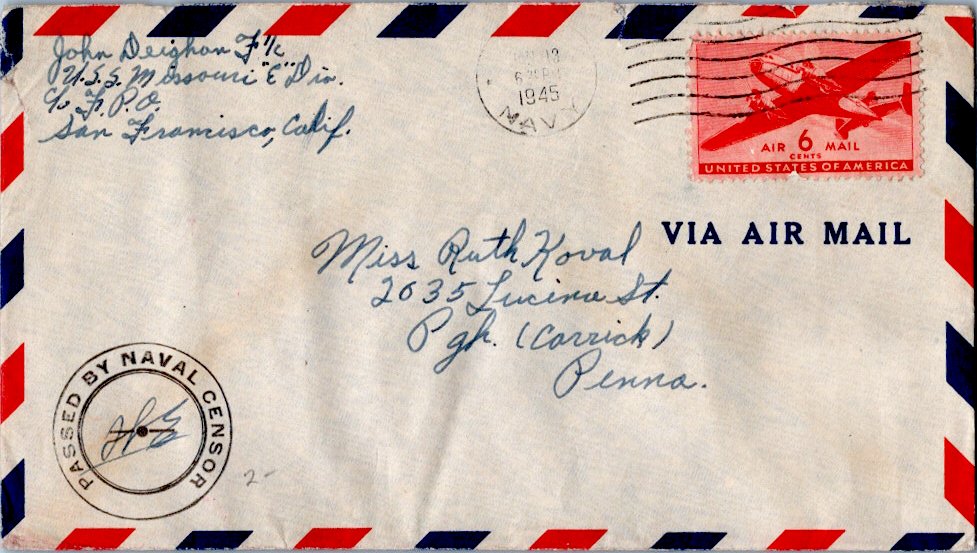 John Deighan F 1/c
U.S.S. Missouri "E" Div.
c/o F.P.O.
San Francisco, Calif.
13
1945
NAVY
AIR 6 MAIL
CENTS
UNITED STATES OF AMERICA
VIA AIR MAIL
Miss Ruth Koval
2035 Lucina St.
Pgh. (Carrick)
Penna.
PASSED BY NAVAL CENSOR
2-